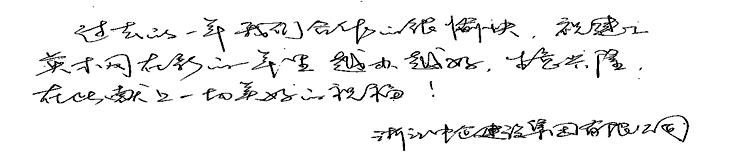 过去的一年我们合作的很愉快，祝建工
英才网在新的一年里越办越好，生意兴隆，
在此献上一切美好的祝福！
浙江中仑建设集团有限公司